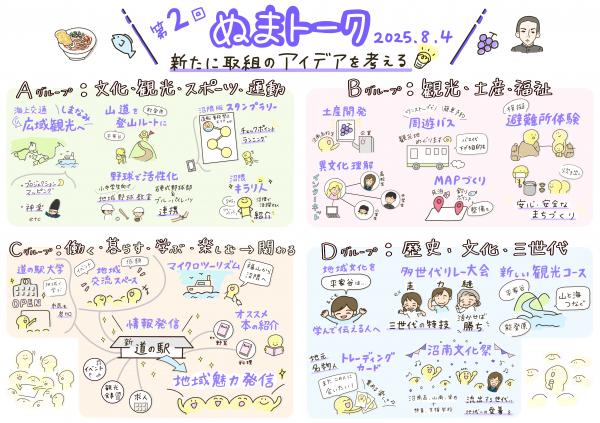 第2回 ぬまトーク 2025.8.4
新たに取組のアイデアを考える
Aグループ：文化・観光・スポーツ・運動
海上交通 しまなみ
広域観光へ
プロジェクション
マッピング
神楽
etc
山道を
登山ルートに
能登原
平家谷
沼隈版 スタンプラリー
チェックポイント
ランニング
野球で活性化
小中学生向け
地域野球教室
連携
沼隈
キラリ人
紹介
Bグループ：観光・土産・福祉
土産開発
企業
周遊バス
観光地
めぐります
バスで
模擬
避難所体験
異文化理解
インターネット
MAPづくり
整備も
安心・安全な
まちづくり
Cグループ：働く・暮らす・学ぶ・楽しむ→関わる
道の駅大学
OPEN
イベント
地域
交流スペース
マイクロツーリズム
福山から
沼隈へ
情報発信
オススメ
本の紹介
野菜
料理
新 道の駅
イベント
観光
求人
地域魅力発信
Dグループ：歴史・文化・三世代
地域文化を
平家谷は…
学んで伝える人へ
多世代リレー大会
走 力 縫
三世代の特技
活かせば
勝ち
新しい観光コース
平家谷
山と海
つなぐ
能登原
地元
名物人
トレーディング
カード
またこの人に
会いたい！
沼南文化祭